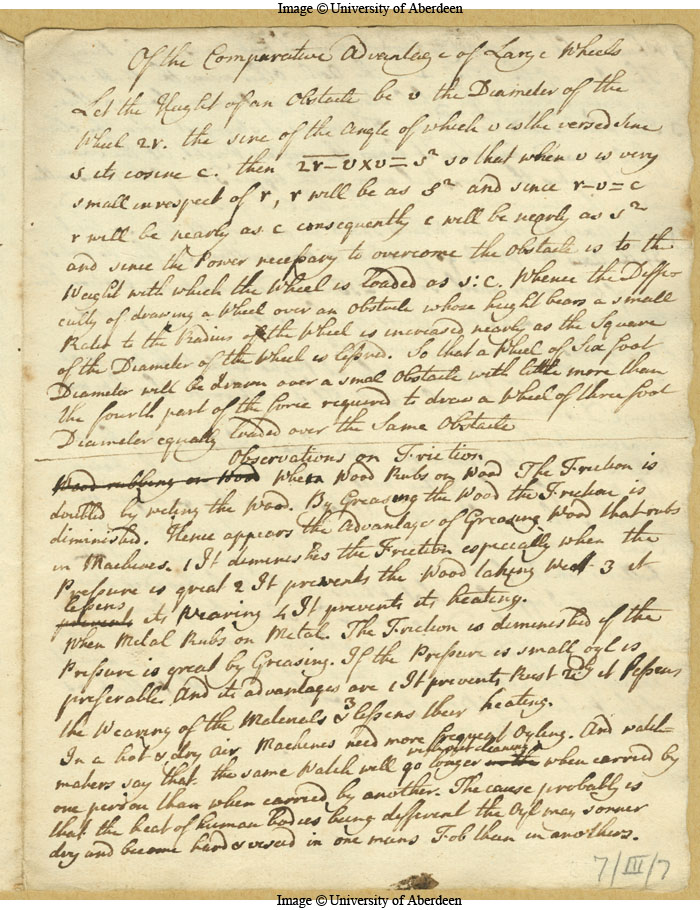 Image © University of Aberdeen
Of the Comparative Advantage of Large Wheels
Let the Hught of an Obstacle be v the Diameter of the
Wheel 2r. the sine of the Angle of which v is the versed sine
s its cosine c. then 2r-v×v=s² so that when v is very
small in respect of r, r will be as s² and since r-v=c
r will be nearly as c consequently c will be nearly as s²
and since the Power necessary to overcome the Obstacle is to the
Weight with which the Wheel is loaded as s:c. Whence the Diffi-
culty of drawing a Wheel over an Obstacle whose hught bears a small
Ratio to the Radius of the Wheel is increased nearly as the Square
of the Diameter of the Wheel is lessned. So that a Wheel of Six foot
Diameter will be drawn over a small Obstacle with little more than
the fourth part of the force required to draw a Wheel of three foot
Diameter equally loaded over the Same Obstacle
Observations on Friction
Wood rubbing on Wood When Wood Rubs on Wood The Friction is
doubled by weting the Wood. By Greasing the Wood the Friction is
diminished. Hence appears the Advantage of Greasing Wood that rubs
in Machines. 1 It diminishes the Friction especially when the
Pressure is great 2 It prevents the Wood taking Weat 3 it
lessens
prevents its Wearing 4 It prevents its heating.
When Metal Rubs on Metal. The Friction is diminished if the
Pressure is great by Greasing. If the Pressure is small oyl is
preferable. And its advantages are 1 It prevents Rust 2dly it lessens
the Wearing of the Materials 3 lessens their heating.
In a hot & dry air Machines need more frequent Oyling. And watch-
without cleaning
makers say that the same Watch will go longer when carried by
one person than when carried by another. The cause probably is
that the heat of human bodies being different the Oyl may sooner
dry and become hard & viscid in one mans Fob than in anothers.
7/III/7
Image © University of Aberdeen